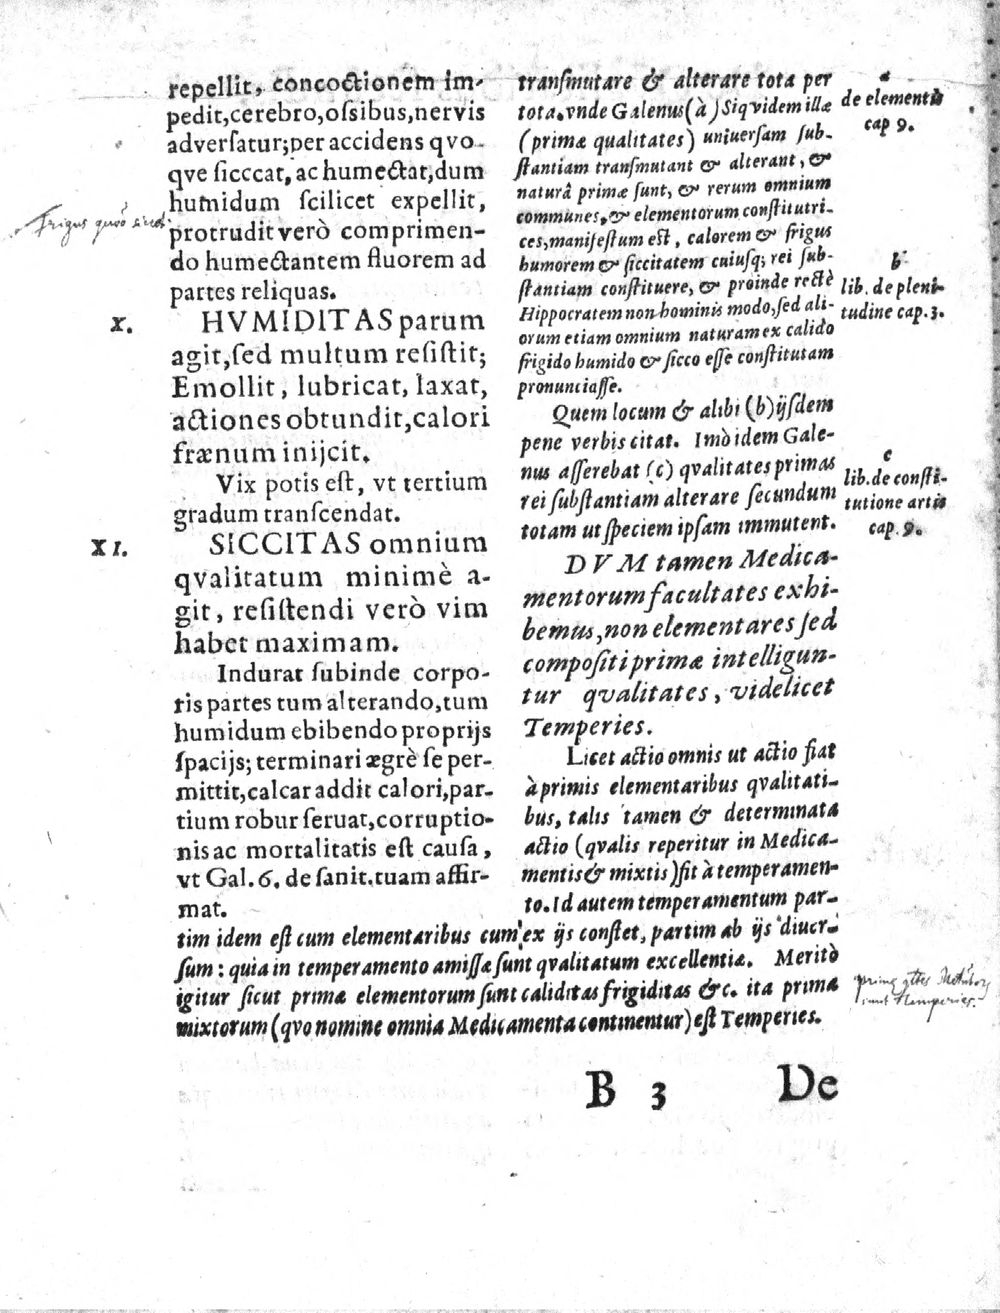 repellit, concoctionem im-
pedit,cerebro,ossibus,nervis
adversatur;per accidens qvo-
qve sicccat, ac humectat,dum
humidum scilicet expellit,
protrudit verò comprimen-
do humectantem fluorem ad
partes reliquas.
X.
HVMIDITAS parum
agit,sed multum resistit;
Emollit, lubricat, laxat,
actiones obtundit,calori
frænum inijcit.
Vix potis est, vt tertium
gradum transcendat.
XI.
SICCITAS omnium
qvalitatum minimè a-
git, resistendi verò vim
habet maximam.
Indurat subinde corpo-
ris partes tum alterando,tum
humidum ebibendo proprijs
spacijs; terminari ægrè se per-
mittit,calcar addit calori,par-
tium robur seruat,corruptio-
nis ac mortalitatis est causa,
vt Gal. 6. de sanit.tuam affir-
mat.
Frigus quõ
transmutare & alterare tota per
tota.vnde Galenus(à) Siqvidem illæ
(primæ qualitates) uniuersam sub-
stantiam transmutant & alterant, &
naturâ primæ sunt, & rerum omnium
communes,& elementorum constitutri-
ces,manifestum est, calorem & frigus
humorem & siccitatem cuiusq; rei sub-
stantiam constituere, & proinde rectè
Hippocratem non hominis modo,sed ali-
orum etiam omnium naturam ex calido
frigido humido & sicco esse constitutam
pronunciasse.
Quem locum & alibi (b)ijsdem
pene verbis citat. Imò idem Gale-
nus asserebat (c) qvalitates primas
rei substantiam alterare secundum
totam ut speciem ipsam immutent.
DVM tamen Medica-
mentorum facultates exhi-
bemus,non elementares sed
compositi primæ intelligun-
tur qvalitates, videlicet
Temperies.
Licet actio omnis ut actio fiat
à primis elementaribus qvalitati-
bus, talis tamen & determinata
actio (qvalis reperitur in Medica-
mentis & mixtis) fit à temperamen-
to. Id autem temperamentum par-
tim idem est cum elementaribus cum ex ijs constet, partim ab ijs diuer-
sum: quia in temperamento amissæ sunt qvalitatum excellentiæ. Meritò
igitur sicut primæ elementorum sunt caliditas frigiditas &c. ita prima
mixtorum (qvo nomine omnia Medicamenta continentur) est Temperies.
a
de elementis
cap 9.
b
lib. de pleni-
tudine cap. 3.
c
lib. de consti-
tutione artis
cap. 9.
sunt Temperies.
B 3 De